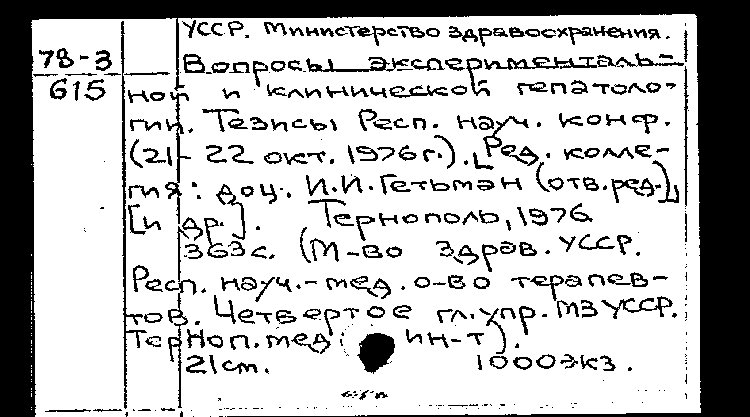 УССР. Министерство здравоохранения.
78-3
Вопросы эксперименталь-
615
ной и клинической гепатоло-
гии. Тезисы Респ. науч. конф.
(21-22 окт. 1976 г.). [Ред. колле-
гия: доц. И.И. Гетьман (отв. ред.)]
[и др.]. Тернополь, 1976
363 с. (М-во здрав. УССР.
Респ. науч.-мед. о-во терапев-
тов. Четвертое гл. упр. МЗ УССР.
Терноп. мед. ин-т).
21 cm. 1000 экз.